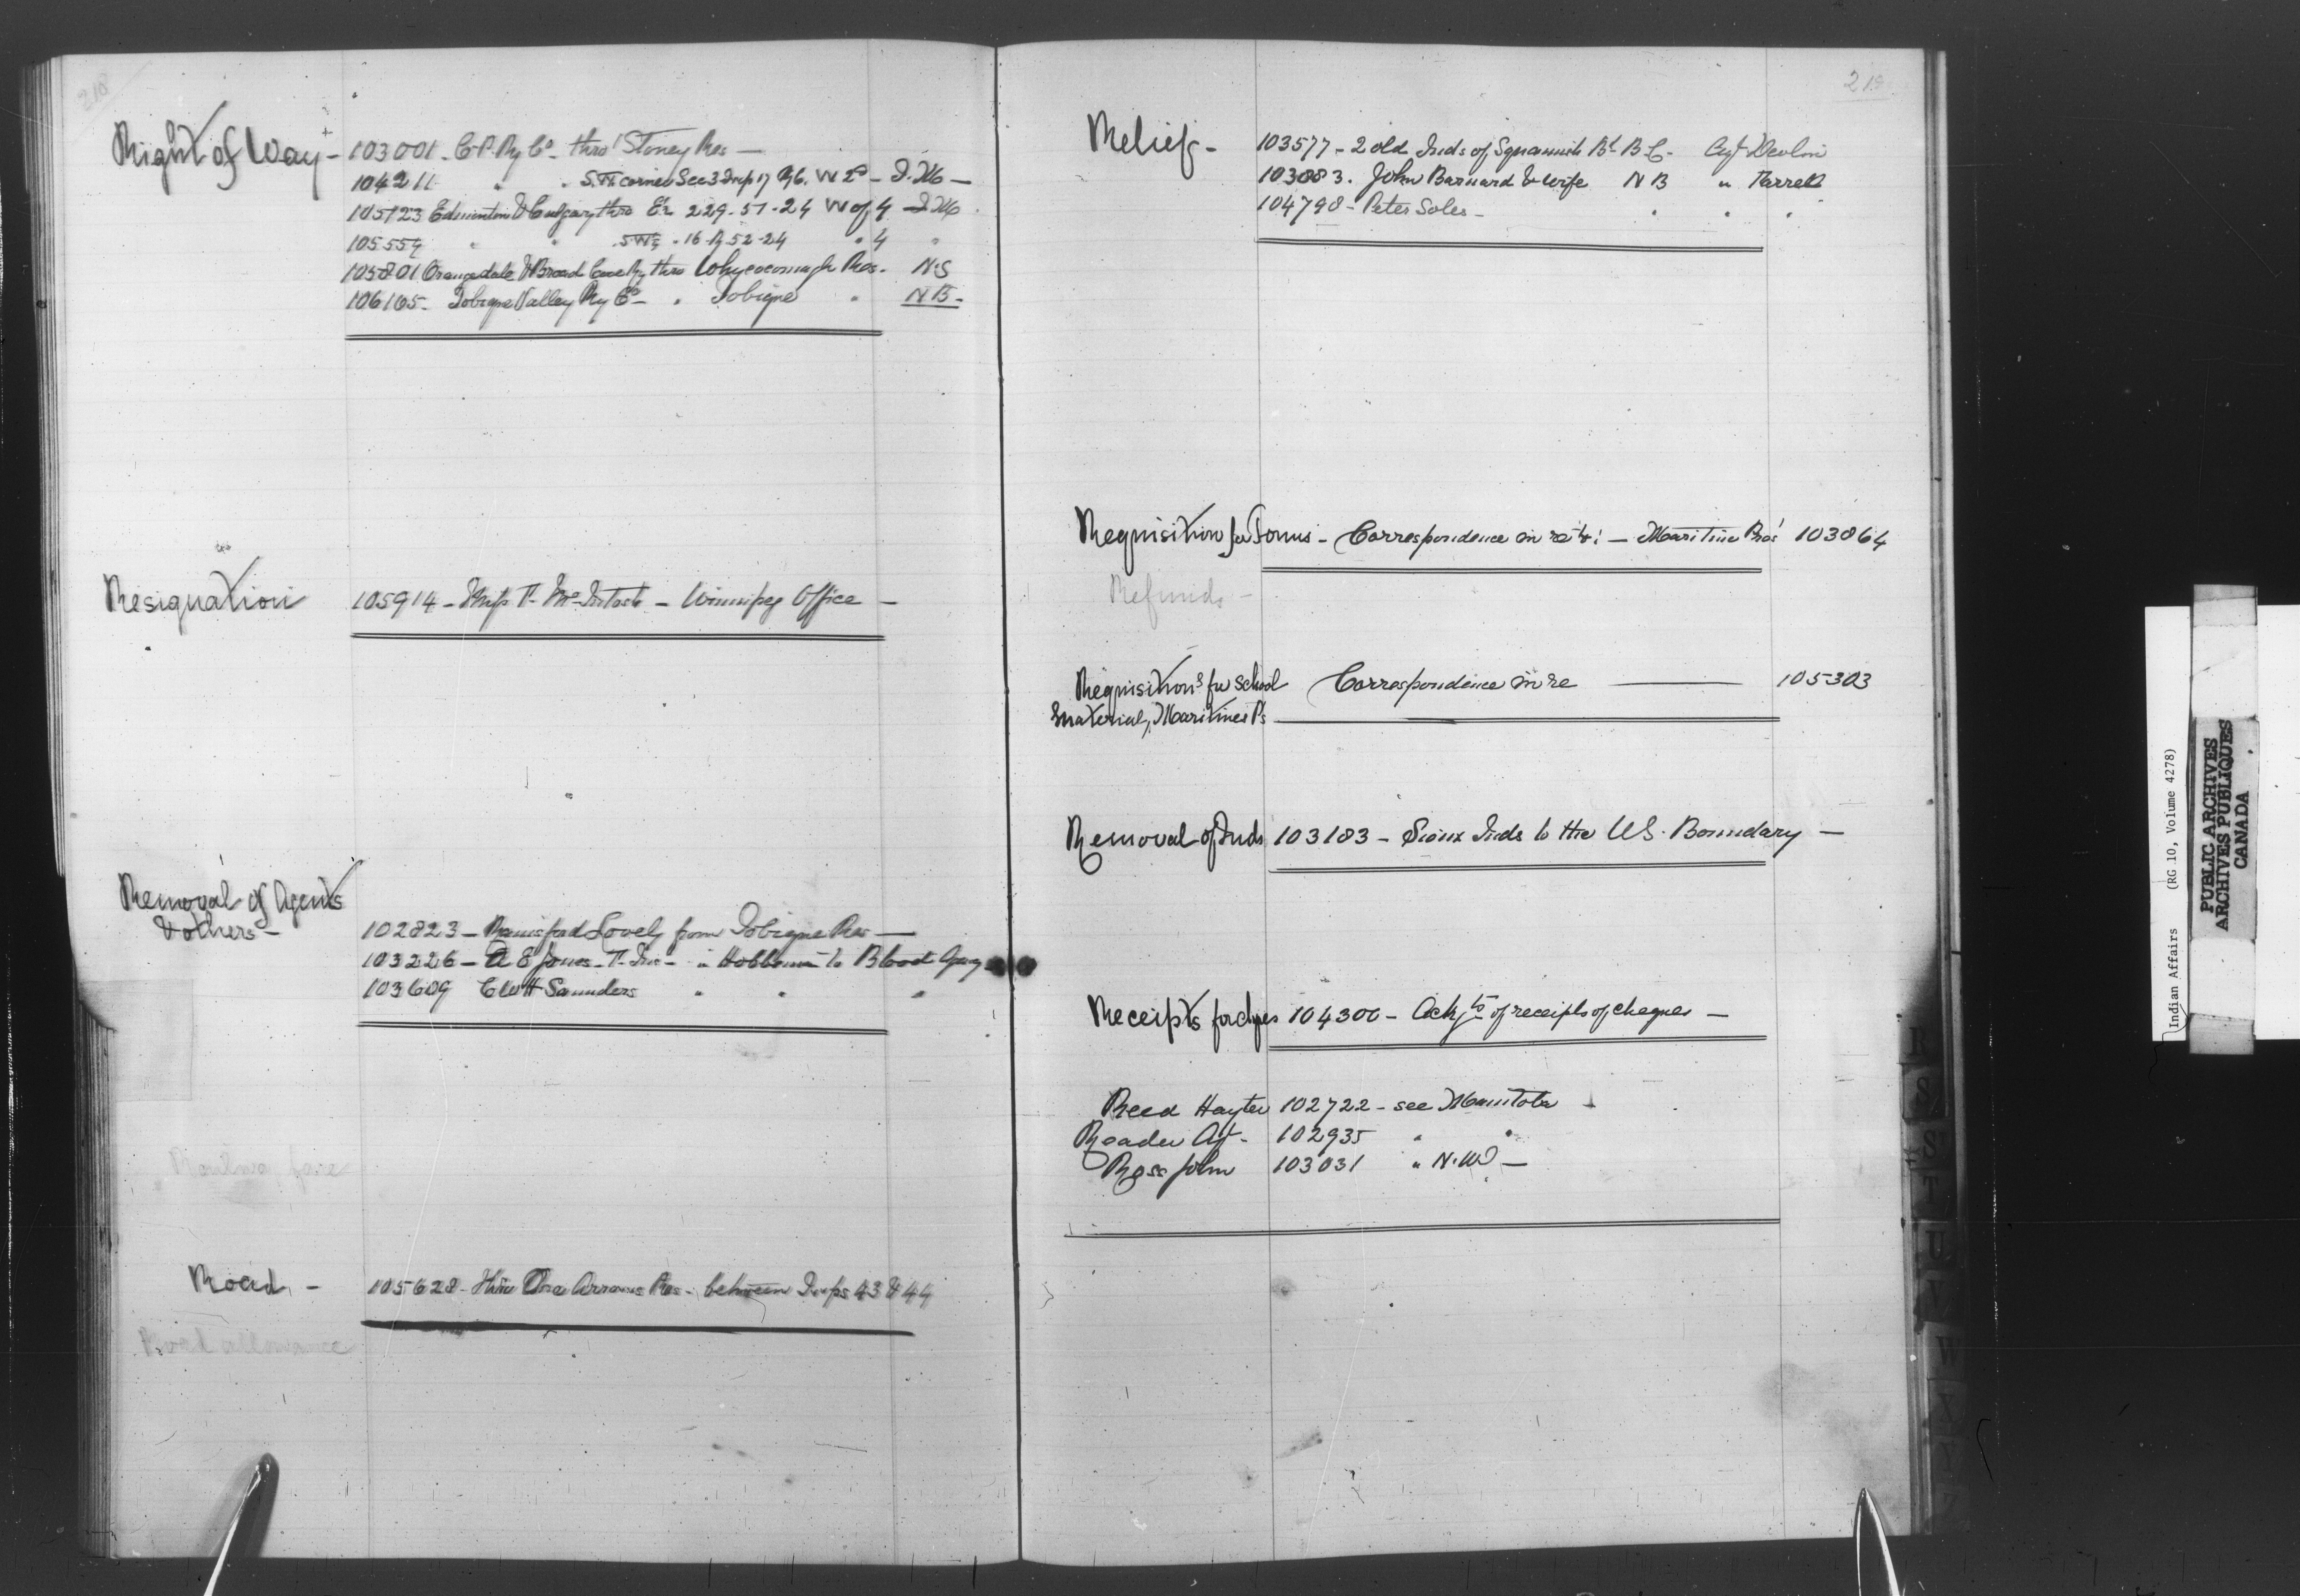 218
Right of Way - 103001 - C.P. Ry Co - thro' Stoney Res -
104211 " " S.W. corner Sec 3 Twp 17 Rg 6. W 2nd - D. of I -
105123 Edmonton & Calgary thro E½ 229-51-24 W of 4
105554 " " 16 Rg 52-24 " 4 "
105801 Orangedale & Broad Cove Ry thro Whycocomagh Res. N.S
106165 - Tobique Valley Ry Co - " Tobique " N B -
Resignation 105914 - Miss T. McIntosh - Winnipeg Office -
Removal of Agents
& others - 102823 - Rainsford Lovely from Tobique Res -
103226 - A E Jones - " Hobbema to Blood Agcy
103609 C W H Saunders " " "
Railwa fare
Road - 105628 - thro One Arrows Res - between Twps 43 & 44
Road allowance
219
Relief - 103577 - 2 old Inds of Squamish Bd B C - Agt Devlin
103883. John Barnard & wife N B " Farrell
104798 - Peter Soles - " " "
Requisition for Forms - Correspondence in re to: - Maritime Pros 103864
Refunds -
Requisitions for School Correspondence in re 105303
material, Maritimes Ps
Removal of Inds 103183 - Sioux Inds to the U S. Boundary -
Receipts for chqes 104300 - Ackts of receipts of cheques -
Reed Hayter 102722 - see Manitoba
Reader Agt - 102935 " "
Ross John 103031 " N. W -
R
S
S
T
U
V
W
Y
Z
Indian Affairs (RG 10, Volume 4278)
PUBLIC ARCHIVES
ARCHIVES PUBLIQUES
CANADA